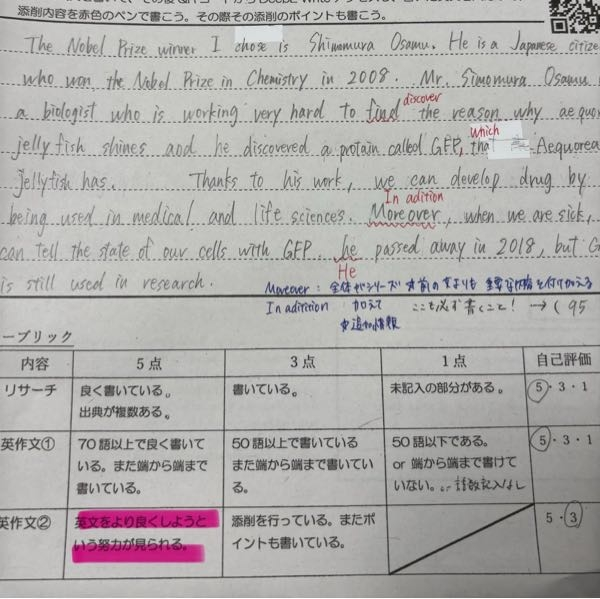 添削内容を赤色のペンで書こう。その際その添削のポイントも書こう。
The Nobel Prize winner I chose is Shimomura Osamu. He is a Japanese citize
who won the Nobel Prize in Chemistry in 2008. Mr. Simomura Osamu
discover
a biologist who is working very hard to find the reason why aequo
which
jellyfish shines and he discovered a protain called GFP, that Aequorea
jellyfish has. Thanks to his work, we can develop drug by
In adition
being used in medical and life sciences. Moreover, when we are sick,
can tell the state of our cells with GFP. he passed away in 2018, but G
He
is still used in research.
Moreover : 全体がシリーズ 前の文よりも 重要な内容を付け加える
In aditition 加えて ここも必ず書くこと! → ( 95
追加情報
ーブリック
内容 5点 3点 1点 自己評価
リサーチ 良く書いている。 書いている。 未記入の部分がある。 5・3・1
出典が複数ある。
英作文① 70語以上で良く書いて 50語以上で書いている 50語以下である。 5・3・1
いる。また端から端まで また端から端まで書いてい or 端から端まで書けて
書いている。 る。 いない。or 語数記入なし
英作文② 英文をより良くしようと 添削を行っている。またポ 5・3
いう努力が見られる。 イントも書いている。